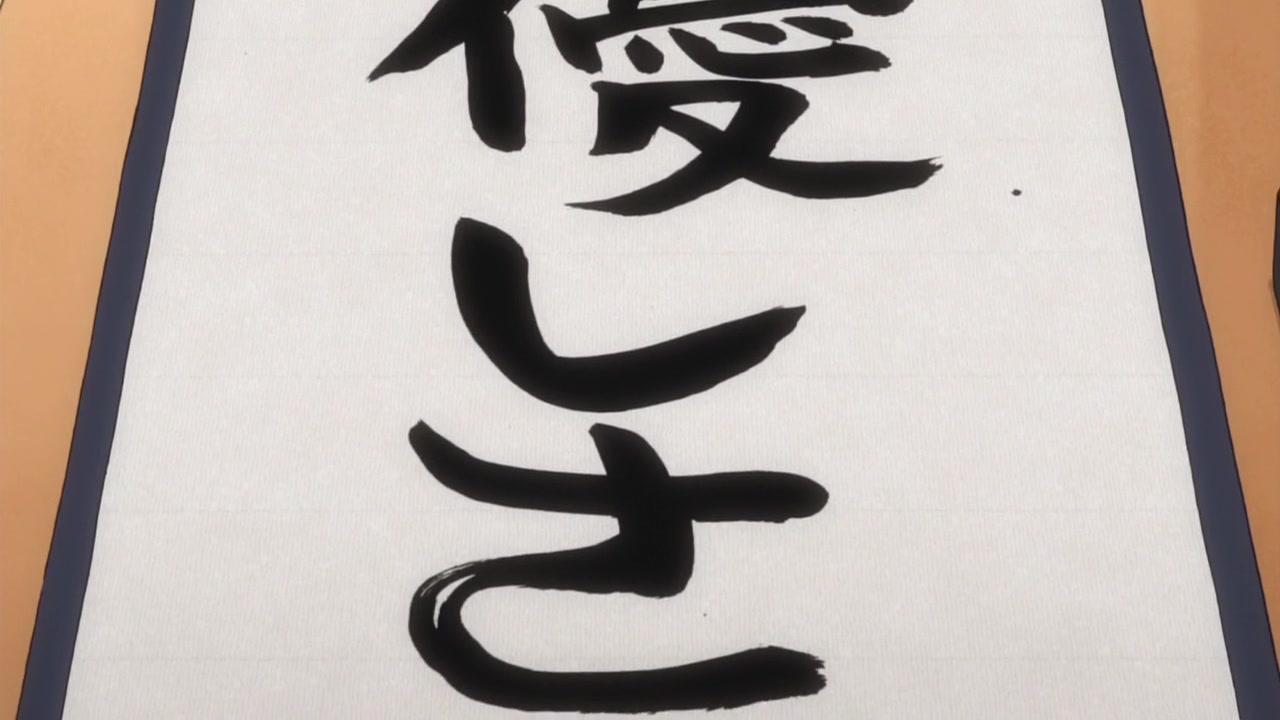 優しさ